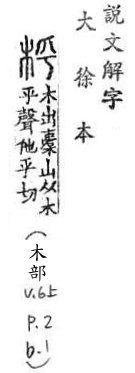 說文解字
大徐本
木出橐山从木
乎聲他乎切
(木部
v.6上
P.2
b.1)